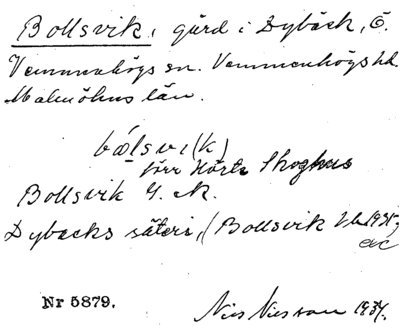 Bollsvik, gård i Dybäck, Ö.
Vemmenhögs sn. Vemmenhögs hd.
Malmöhus län.
bålsvi(k)
förr Hörte Skoghus
Bollsvik G. K.
Dybäcks säteri, (Bollsvik Jb 1935,
Nr 5879.
Nils Nilsson 1934.